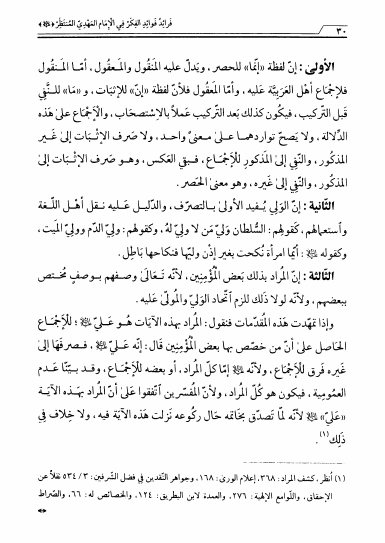 فَرَائِدُ فَوَائِدِ الفِكَرِ فِي الإِمَامِ المَهْدِيِّ المُنْتَظَرِ (ﷺ)
٣٠
الأولىٰ : إنّ لفظة «إنّما» للحصر ، ويدلّ عليه المنقُول والمعقُول ، أمّا المنقُول
فلإجماع أهل العربيَّة عليه ، وأمّا المعقُول فلأنّ لفظة «إنّ» للإثبات ، و «ما» للنَّفي
قبل التركيب ، فيكون كذلك بَعد التركيب عَملاً بالإستصحاب ، وللإجماع علىٰ هذه
الدِّلالة ، ولا يَصحّ تواردهما علىٰ معنىً واحد ، ولا صَرف الإثبات إلىٰ غَير
المذكُور ، والنَّفي إلىٰ المذكور للإجماع ، فبقي العَكس ، وهو صَرف الإثبات إلىٰ
المذكُور ، والنَّفي إلىٰ غَيره ، وهو معنىٰ الحَصر .
الثّانية : إنّ الوَلي يُفيد الأولىٰ بالتصرّف ، والدّليل عَليه نقل أهل اللّغة
وأستعمالهم ، كقولهم : السُّلطان وَليّ مَن لا وَليّ لهُ ، وكقولهم : وَليّ الدّم ووَليّ الميت ،
وكقوله ﷺ : أيّما امرأة نُكحت بغير إذن وَليّها فنكاحها بَاطِل .
الثّالثة : إنّ المُراد بذلك بَعض المُؤمنين ، لأنّه تَعالىٰ وصفهم بوصفٍ مُختص
ببعضهم ، ولأنّه لولا ذلك للزم أتّحاد الوَليّ والمُولىٰ عَليه .
وإذا تمهّدت هَذه المُقدّمات فنقول : المُراد بهذه الآيات هُو عَليّ ؛ للإجماع
الحَاصل علىٰ أنّ من خصّص بها بعض المُؤمنين قَال : إنّه عَليّ ، فَصرفهَا إلىٰ
غَيره خَرق للإجماع ، ولأنّه إمّا كلّ المُراد ، أو بعضه للإجماع ، وقد بيّنّا عَدم
العمُوميّة ، فيكون هو كُلّ المُراد ، ولأنّ المُفسّرين أتّفقوا علىٰ أنّ المُراد بهذه الآية
«عَليّ» لأنّه لمّا تَصدّق بخَاتمه حَال ركُوعه نَزلت هَذه الآية فيه ، ولا خِلاف في
ذَلِك (١) .
(١) أنظر ، كشف المراد : ٣٦٨ ، إعلام الورىٰ : ١٦٨ ، وجواهر النقدين في فضل الشّرفين : ٣ / ٥٣٤ نقلاً عن
الإحقاق ، واللّوامع الإلهية : ٢٧٦ ، والعمدة لابن البطريق : ١٢٤ ، والخصائص له : ٦٦ ، والصّراط